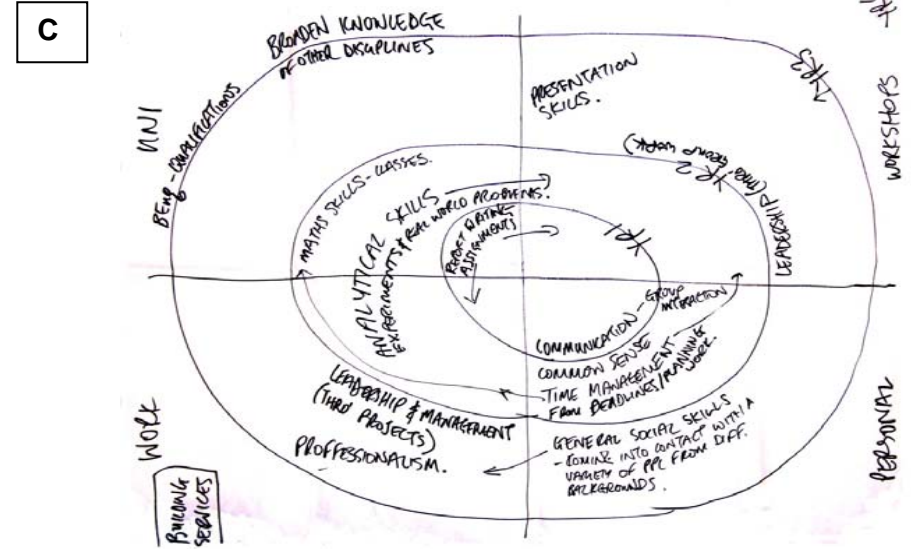 C
BROADEN KNOWLEDGE
OF OTHER DISCIPLINES
UNI
BEng - QUALIFICATIONS
PRESENTATION
SKILLS.
YR3
WORKSHOPS
MATHS SKILLS - CLASSES.
ANALYTICAL SKILLS
EXPERIMENTS & REAL WORLD PROBLEMS.
REPORT WRITING
ASSIGNMENTS
YR1
YR2
LEADERSHIP (THRO' GROUP WORK)
COMMUNICATION - GROUP
INTERACTION
COMMON SENSE
TIME MANAGEMENT
FROM DEADLINES/PLANNING
WORK.
LEADERSHIP & MANAGEMENT
(THRO PROJECTS)
PROFFESSIONALISM.
GENERAL SOCIAL SKILLS
- COMING INTO CONTACT WITH A
VARIETY OF PPL FROM DIFF.
BACKGROUNDS.
WORK
PERSONAL
BUILDING
SERVICES